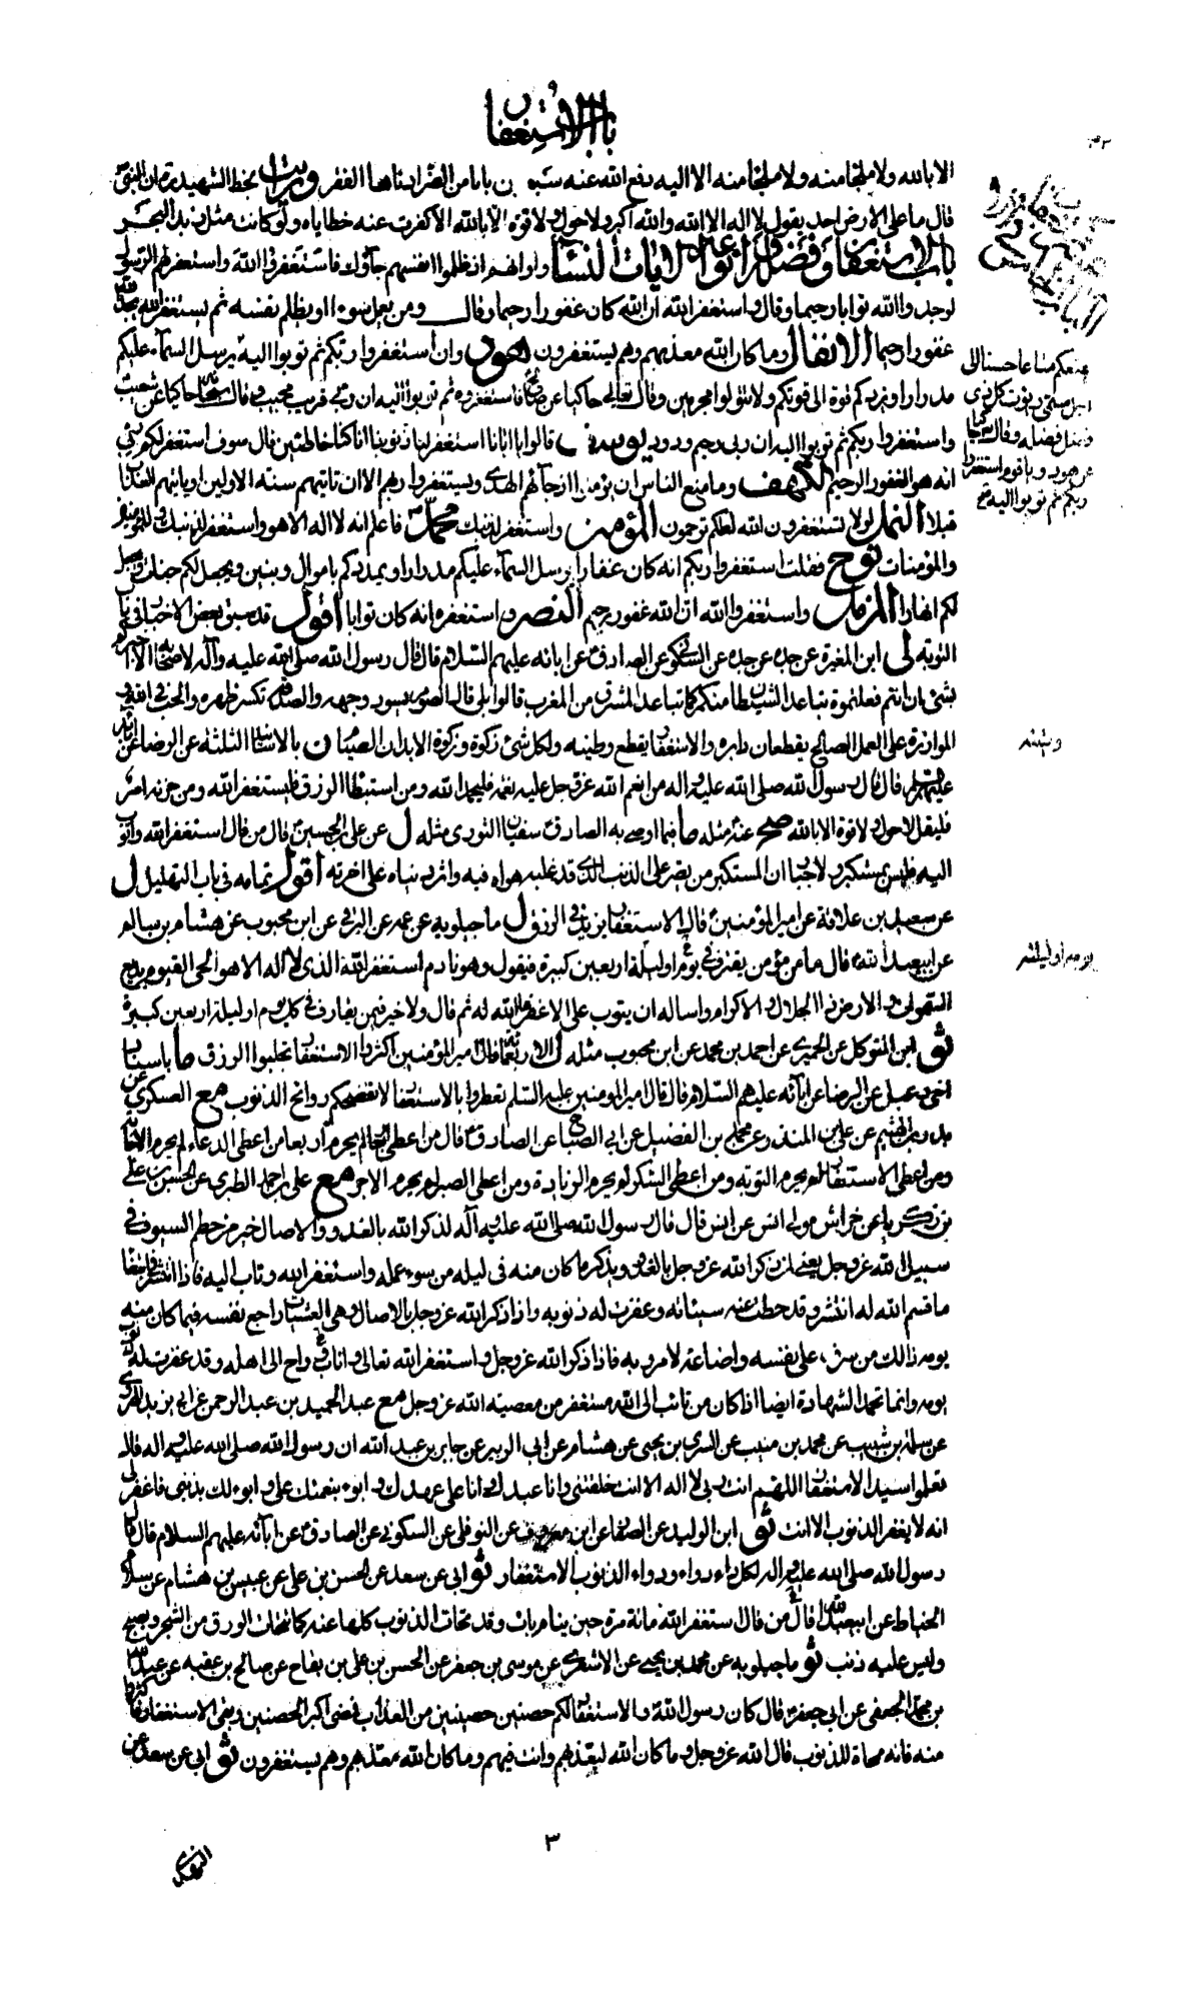 باب الاستغفار
الا بالله ولا ملجأ منه ولا ملجأ منه الا اليه دفع الله عنه سبعين بابا من الضر ادناها الفقر وبخط الشهيد ره ان النبي ص
قال ما على الارض احد يقول لا اله الا الله والله اكبر ولا حول ولا قوة الا بالله الا كفرت عنه خطاياه ولو كانت مثل زبد البحر
باب الاستغفار وفضله وانواعه الايات النسآ ولو انهم اذ ظلموا انفسهم جآؤك فاستغفروا الله واستغفر لهم الرسول
لوجدوا الله توابا رحيما وقال واستغفر الله ان الله كان غفورا رحيما وقال ومن يعمل سوءا او يظلم نفسه ثم يستغفر الله يجد الله
غفورا رحيما الانفال وما كان الله معذبهم وهم يستغفرون هود وان استغفروا ربكم ثم توبوا اليه يرسل السمآء عليكم
مدرارا ويزدكم قوة الى قوتكم ولا تتولوا مجرمين وقال تعالى حاكيا عن صالح فاستغفروه ثم توبوا اليه ان ربي قريب مجيب وقال حاكيا عن شعيب
واستغفروا ربكم ثم توبوا اليه ان ربى رحيم ودود يوسف قالوا يا ابانا استغفر لنا ذنوبنا انا كنا خاطئين قال سوف استغفر لكم ربي
انه هو الغفور الرحيم الكهف وما منع الناس ان يؤمنوا اذ جآءهم الهدى ويستغفروا ربهم الا ان تاتيهم سنة الاولين او ياتيهم العذاب
قبلا النمل لولا تستغفرون الله لعلكم ترحمون المؤمن واستغفر لذنبك محمد فاعلم انه لا اله الا هو واستغفر لذنبك وللمؤمنين
والمؤمنات نوح فقلت استغفروا ربكم انه كان غفارا يرسل السمآء عليكم مدرارا ويمددكم باموال وبنين ويجعل لكم جنات ويجعل
لكم انهارا المزمل واستغفروا الله ان الله غفور رحيم النصر واستغفره انه كان توابا اقول قد سبق بعض الاخبار في باب
التوبة لى ابن المغيرة عن جده عن جده عن السكوني عن الصادق عن ابائه عليهم السلام قال قال رسول الله صلى الله عليه وآله لاصحابه الا اخبركم
بشئ ان انتم فعلتموه تباعد الشيطان منكم كما تباعد المشرق من المغرب قالوا بلى قال الصوم يسود وجهه والصدقة تكسر ظهره والحب في الله
الموازرة على العمل الصالح يقطعان دابره والاستغفار يقطع وتينه ولكل شئ زكوة وزكوة الابدان الصيام ن بالاسانيد الثلثة عن الرضا عن ابائه
عليهم السلام قال قال رسول الله صلى الله عليه واله من انعم الله عز وجل عليه نعمة فليحمد الله ومن استبطا الرزق فليستغفر الله ومن حزنه امر
فليقل لا حول ولا قوة الا بالله صح عنه مثله ما فيما اوصى به الصادق سفيان الثوري مثله ل عن علي بن الحسين قال من قال استغفر الله واتوب
اليه فليس بمستكبر ولا جبار ان المستكبر من يصر على الذنب الذي قد غلبه هواه فيه واثر دنياه على اخرته اقول تمامه في باب التهليل ل
عن سعيد بن علاقة عن امير المؤمنين قال الاستغفار يزيد في الرزق ل ماجيلويه عن عمه عن البرقي عن ابن محبوب عن هشام بن سالم
عن ابيعبد الله قال ما من مؤمن يقترف في يومه او ليلة اربعين كبيرة فيقول وهو نادم استغفر الله الذى لا اله الا هو الحى القيوم بديع
السموات والارض ذا الجلال والاكرام واساله ان يتوب على الا غفرها الله له ثم قال ولا خير فيمن يقارف في كل يوم او ليلة اربعين كبيرة
ثو ابن المتوكل عن الحميري عن احمد بن محمد عن ابن محبوب مثله ل الاربعمائة قال امير المؤمنين اكثروا الاستغفار تجلبوا الرزق ما باسناد
اخى دعبل عن الرضا عن ابآئه عليهم السلام قال قال امير المومنين عليه السلم تعطروا بالاستغفار لا تفضحكم روائح الذنوب مع العسكري عن
بدر بن الهيثم عن علي بن المنذر عن محمد بن الفضيل عن ابي الصباح عن الصادق قال من اعطى اربعا لم يحرم اربعا من اعطى الدعاء لم يحرم الاجابة
ومن اعطى الاستغفار لم يحرم التوبة ومن اعطى الشكر لم يحرم الزيادة ومن اعطى الصبر لم يحرم الاجر مع علي بن احمد الطبري عن الحسن بن علي
بن زكريا عن خراش مولى انس عن انس قال قال رسول الله صلى الله عليه آله لذكر الله بالغدو والاصال خير من حطم السيوف في
سبيل الله عز وجل يعني لمن ذكر الله عز وجل بالغدو ويذكر ما كان منه في ليله من سوء عمله واستغفر الله وتاب اليه فاذا انتشر في ابتغاء
ما قسم الله له انتشر وقد حطت عنه سيئاته وغفرت له ذنوبه واذا ذكر الله عز وجل بالاصال وهي العشيات راجع نفسه فيما كان منه
يومه ذلك من سرف على نفسه واضاعة لامر ربه فاذا ذكر الله عز وجل واستغفر الله تعالى واناب راح الى اهله وقد غفرت له ذنوب
يومه وانما تحمد الشهادة ايضا اذا كان من تائب الى الله مستغفر من معصية الله عز وجل مع عبد الحميد بن عبد الرحمن عن ابي يزيد القروي
عن سلمة بن شبيب عن محمد بن منيب عن السري بن يحيى عن هشام عن ابي الزبير عن جابر بن عبد الله ان رسول الله صلى الله عليه واله قال
تعلموا سيد الاستغفار اللهم انت ربي لا اله الا انت خلقتنى وانا عبدك وانا على عهدك وابوء بنعمتك علي وابوء لك بذنبي فاغفر لي
انه لا يغفر الذنوب الا انت ثو ابن الوليد عن الصفار عن ابن معروف عن النوفلي عن السكوني عن الصادق عن ابآئه عليهم السلام قال قال
رسول الله صلى الله عليه واله لكل داء دواء ودواء الذنوب الاستغفار ثو ابي عن سعد عن الحسن بن علي عن عبيس بن هشام عن سلام
الحناط عن ابيعبد الله قال من قال استغفر الله مائة مرة حين ينام بات وقد تحات الذنوب كلها عنه كما تتحات الورق من الشجر ويصبح
وليس عليه ذنب ثو ماجيلويه عن محمد بن يحيى عن الاشعري عن موسى بن جعفر عن الحسن بن علي بن بقاح عن صالح بن عقبه عن عبد الله
بن محمد الجعفى عن ابى جعفر قال كان رسول الله والاستغفار لكم حصنين حصينين من العذاب فمضى اكبر الحصنين وبقى الاستغفار فاكثروا
منه فانه ممحاة للذنوب قال الله عز وجل وما كان الله ليعذبهم وانت فيهم وما كان الله معذبهم وهم يستغفرون ثو ابى عن سعد عن
يمتعكم متاعا حسنا الى
اجل مسمى ويؤت كل ذى
فضل فضله وقال حاكيا
عن هود ويا قوم استغفروا
ربكم ثم توبوا اليه
وتينه
يومه او ليلته
٣
النهدي